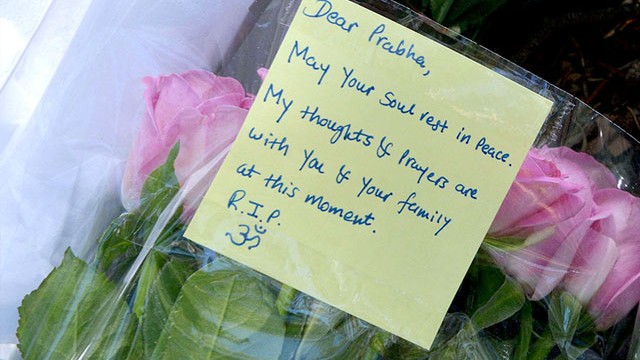 Dear Prabha,
May Your Soul rest in Peace.
My thoughts & Prayers are
with You & Your family
at this moment.
R.I.P.
ॐ